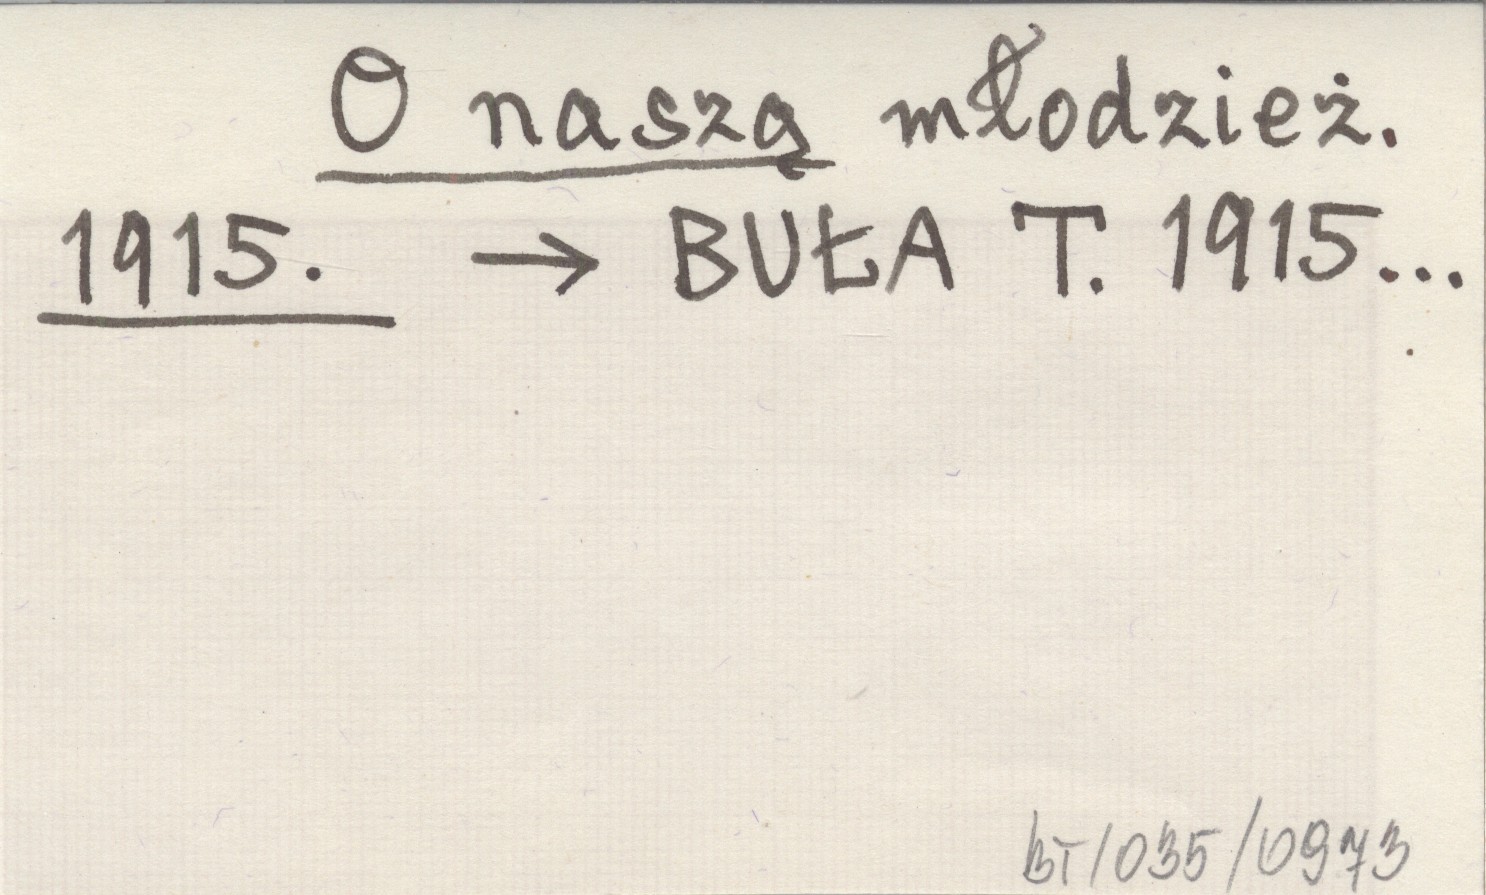 O naszą młodzież.
1915. → BUŁA T. 1915...
BT/035/0973